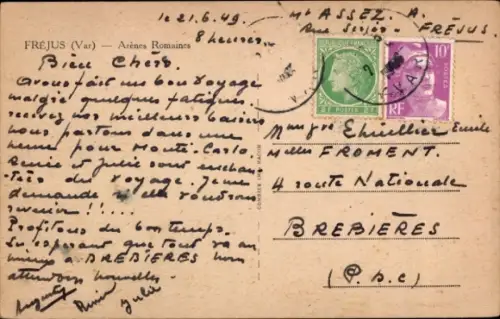 le 21.6.49
8 heures
Mr ASSEZ. A.
Rue - FRÉJUS
FRÉJUS (Var) — Arènes Romaines
Bien Chers.
Avons fait un bon voyage
malgré quelques fatigues.
recevez nos meilleurs baisers
nous partons dans une
heure pour Monte-Carlo.
Renée et Julie sont enchan-
tées du voyage. Je me
demande si elles voudront
revenir !!....
Profitons du bon temps.
En espérant que tout va au
mieux à BREBIERES nous
attendons nouvelles
Augusta
Renée
Julie
RF
POSTES
2F
10F
RF
VAR
Emile
Melles FROMENT.
4 route Nationale
BREBIÈRES
(P.d.C)